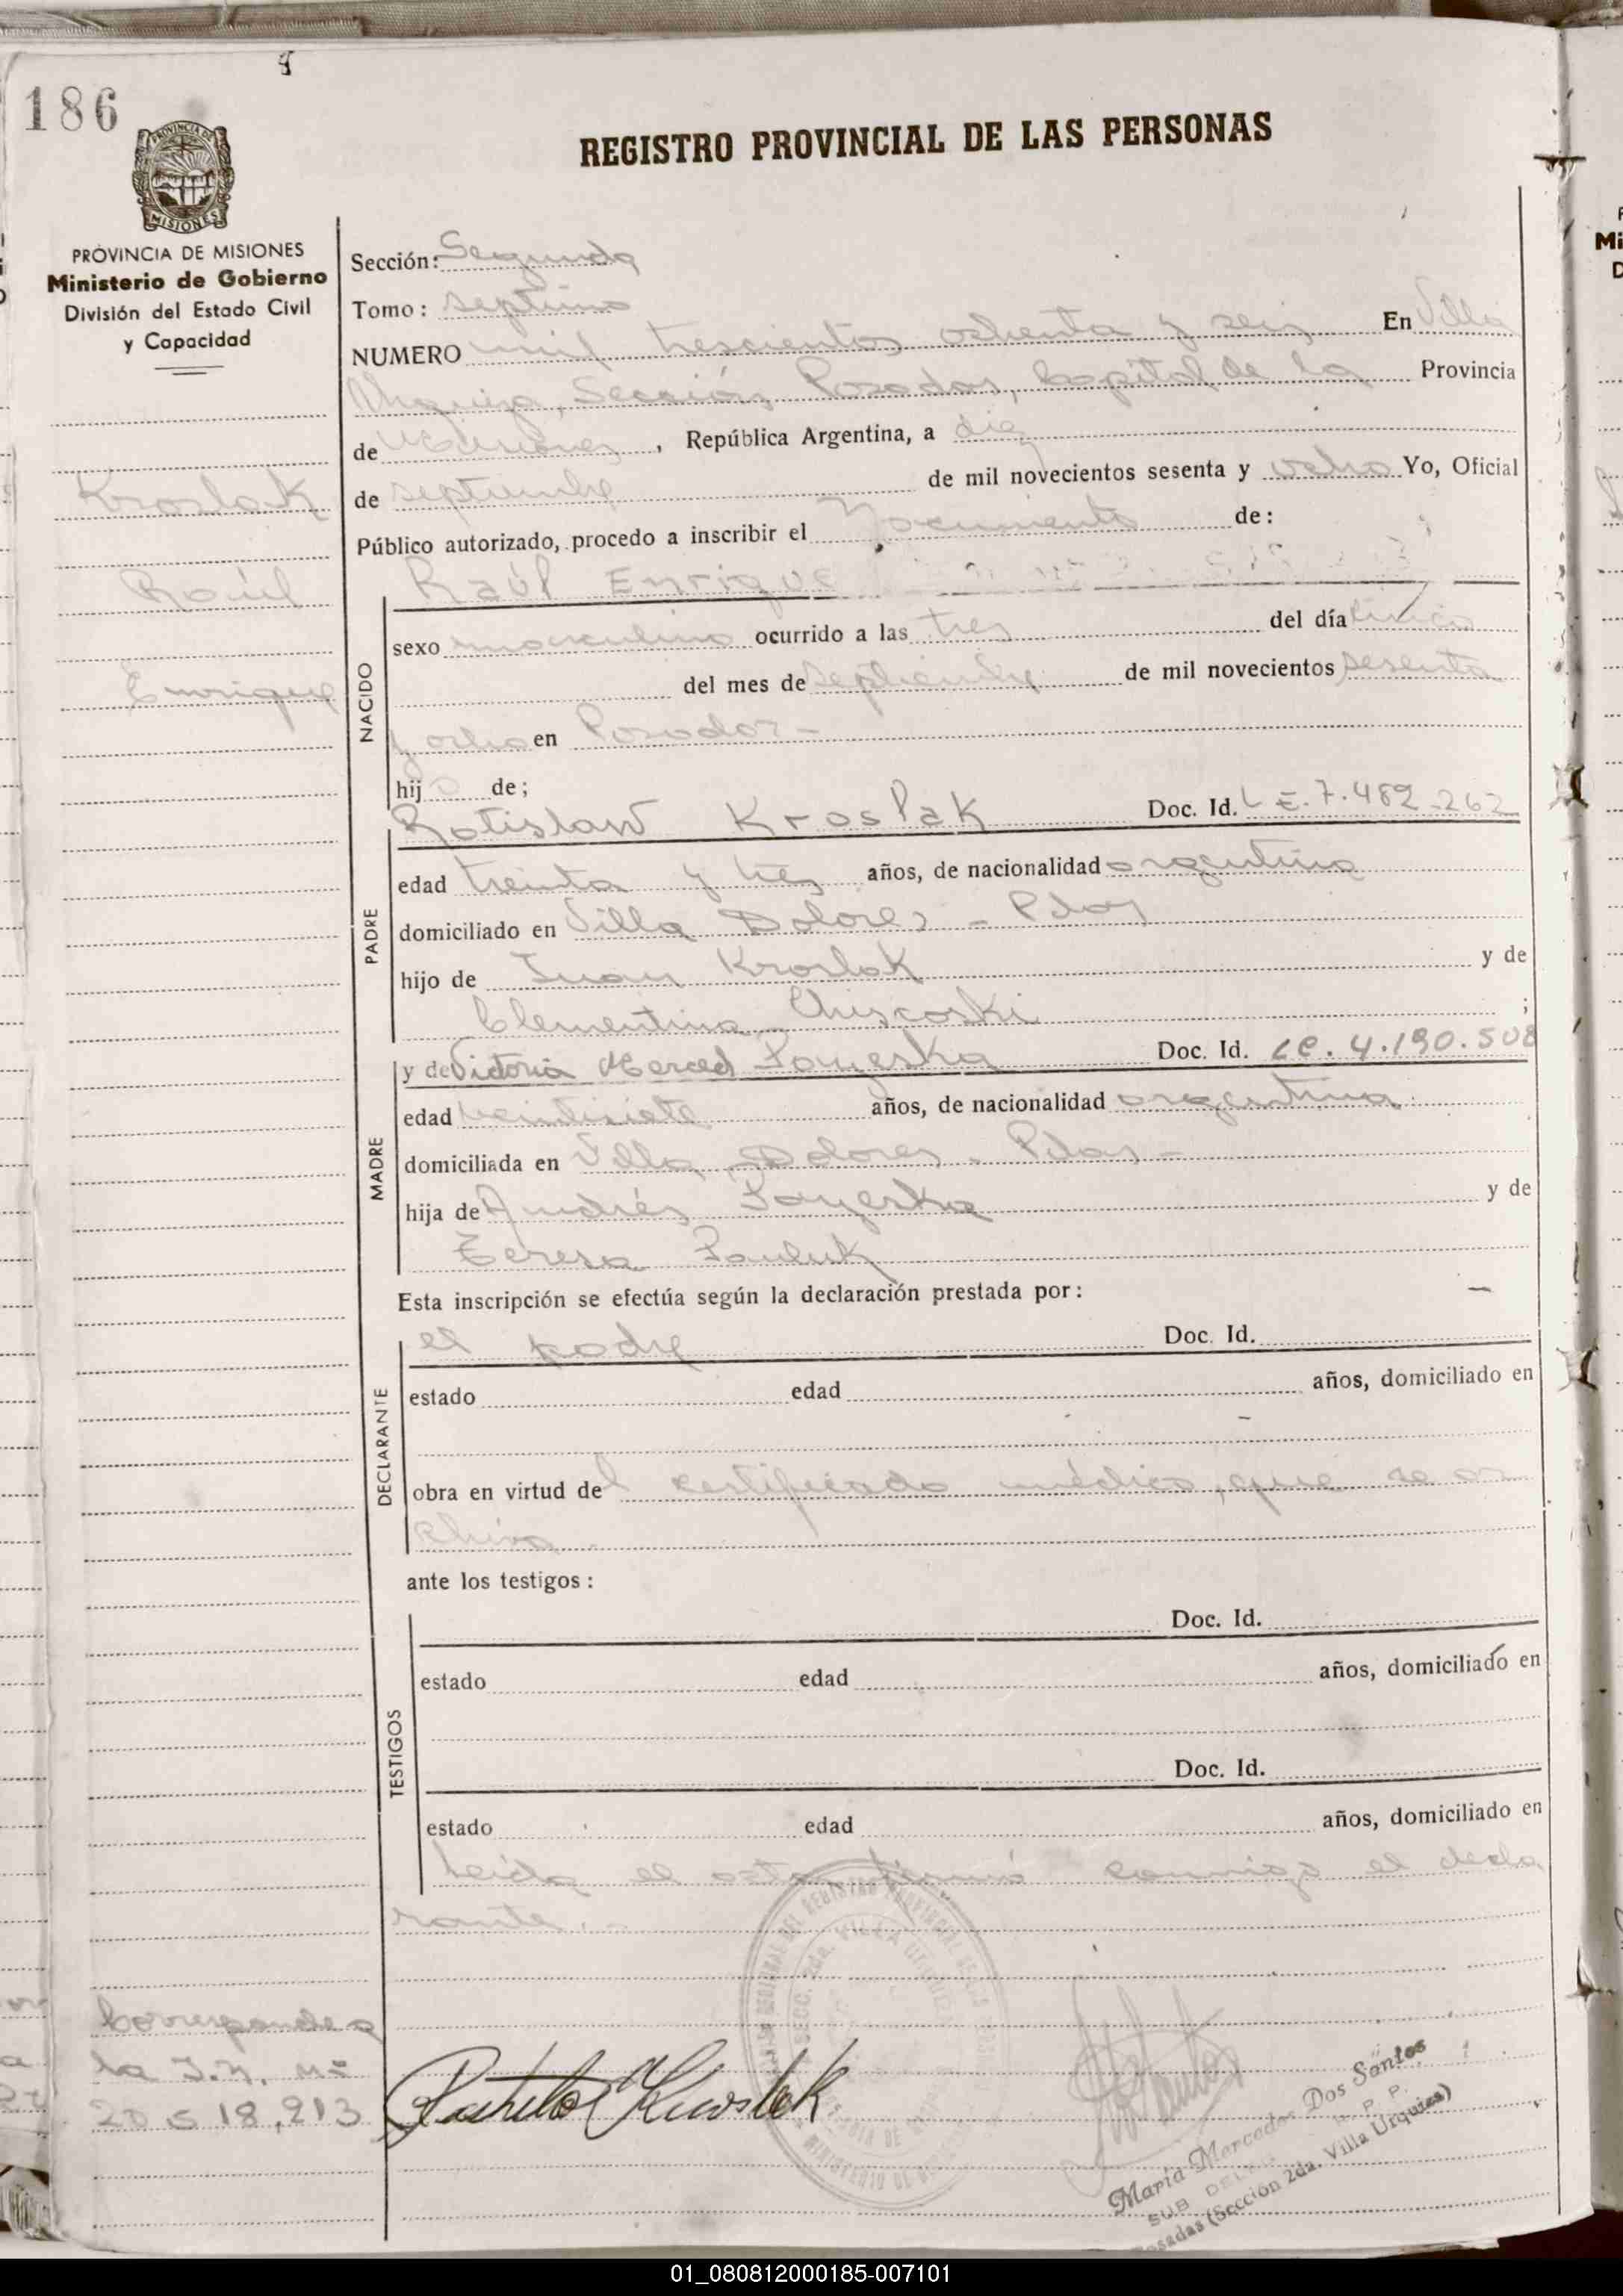 186
PROVINCIA DE MISIONES
Ministerio de Gobierno
División del Estado Civil
y Capacidad
Kroslak
Raúl
Enrique
REGISTRO PROVINCIAL DE LAS PERSONAS
Sección: Segunda
Tomo: septimo
NUMERO mil trescientos ochenta y seis En Villa
Urquiza, Sección, Posadas, Capital de la Provincia
de Misiones, República Argentina, a diez
de septiembre de mil novecientos sesenta y ocho Yo, Oficial
Público autorizado, procedo a inscribir el Nacimiento de:
Raúl Enrique
NACIDO
sexo masculino ocurrido a las tres del día cinco
del mes de septiembre de mil novecientos sesenta
y ocho en Posadas -
hijo de;
PADRE
Rotislaw Kroslak Doc. Id. L E. 7.482.262
edad treinta y tres años, de nacionalidad argentina
domiciliado en Villa Dolores - Pdas
hijo de Juan Kroslak y de
Clementina Chiscoski ;
MADRE
y de Victoria Merced Doc. Id. LC. 4.190.508
edad veintisiete años, de nacionalidad argentina
domiciliada en Villa Dolores - Pdas -
hija de Andrés y de
Teresa Pauluk
Esta inscripción se efectúa según la declaración prestada por:
DECLARANTE
el padre Doc. Id.
estado edad años, domiciliado en
obra en virtud del certificado médico, que se ar
chiva
ante los testigos:
TESTIGOS
Doc. Id.
estado edad años, domiciliado en
Doc. Id.
estado edad años, domiciliado en
Leída el acta firmó conmigo el decla
rante. -
Corresponde a
la I.N. Nº
20518,213
María Mercedes Dos Santos
R. P. P.
Posadas (Sección 2da. Villa Urquiza)
01_080812000185-007101